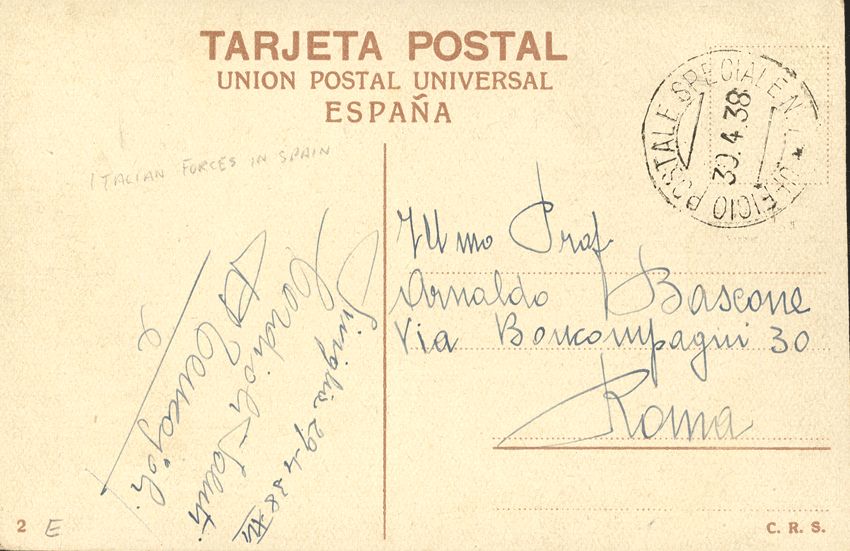 TARJETA POSTAL
UNION POSTAL UNIVERSAL
ESPAÑA
UFFICIO POSTALE SPECIALE N.
30.4.38
ITALIAN FORCES IN SPAIN
29-4-38 XVI
Cordiali Saluti
Illmo Prof.
Arnaldo Bascone
Via Boncompagni 30
Roma
2 E
C. R. S.